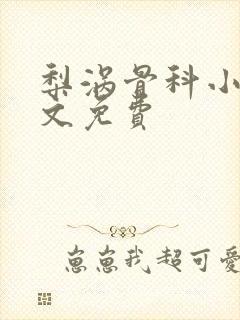 梨涡骨科小
文免费
崽崽我超可爱